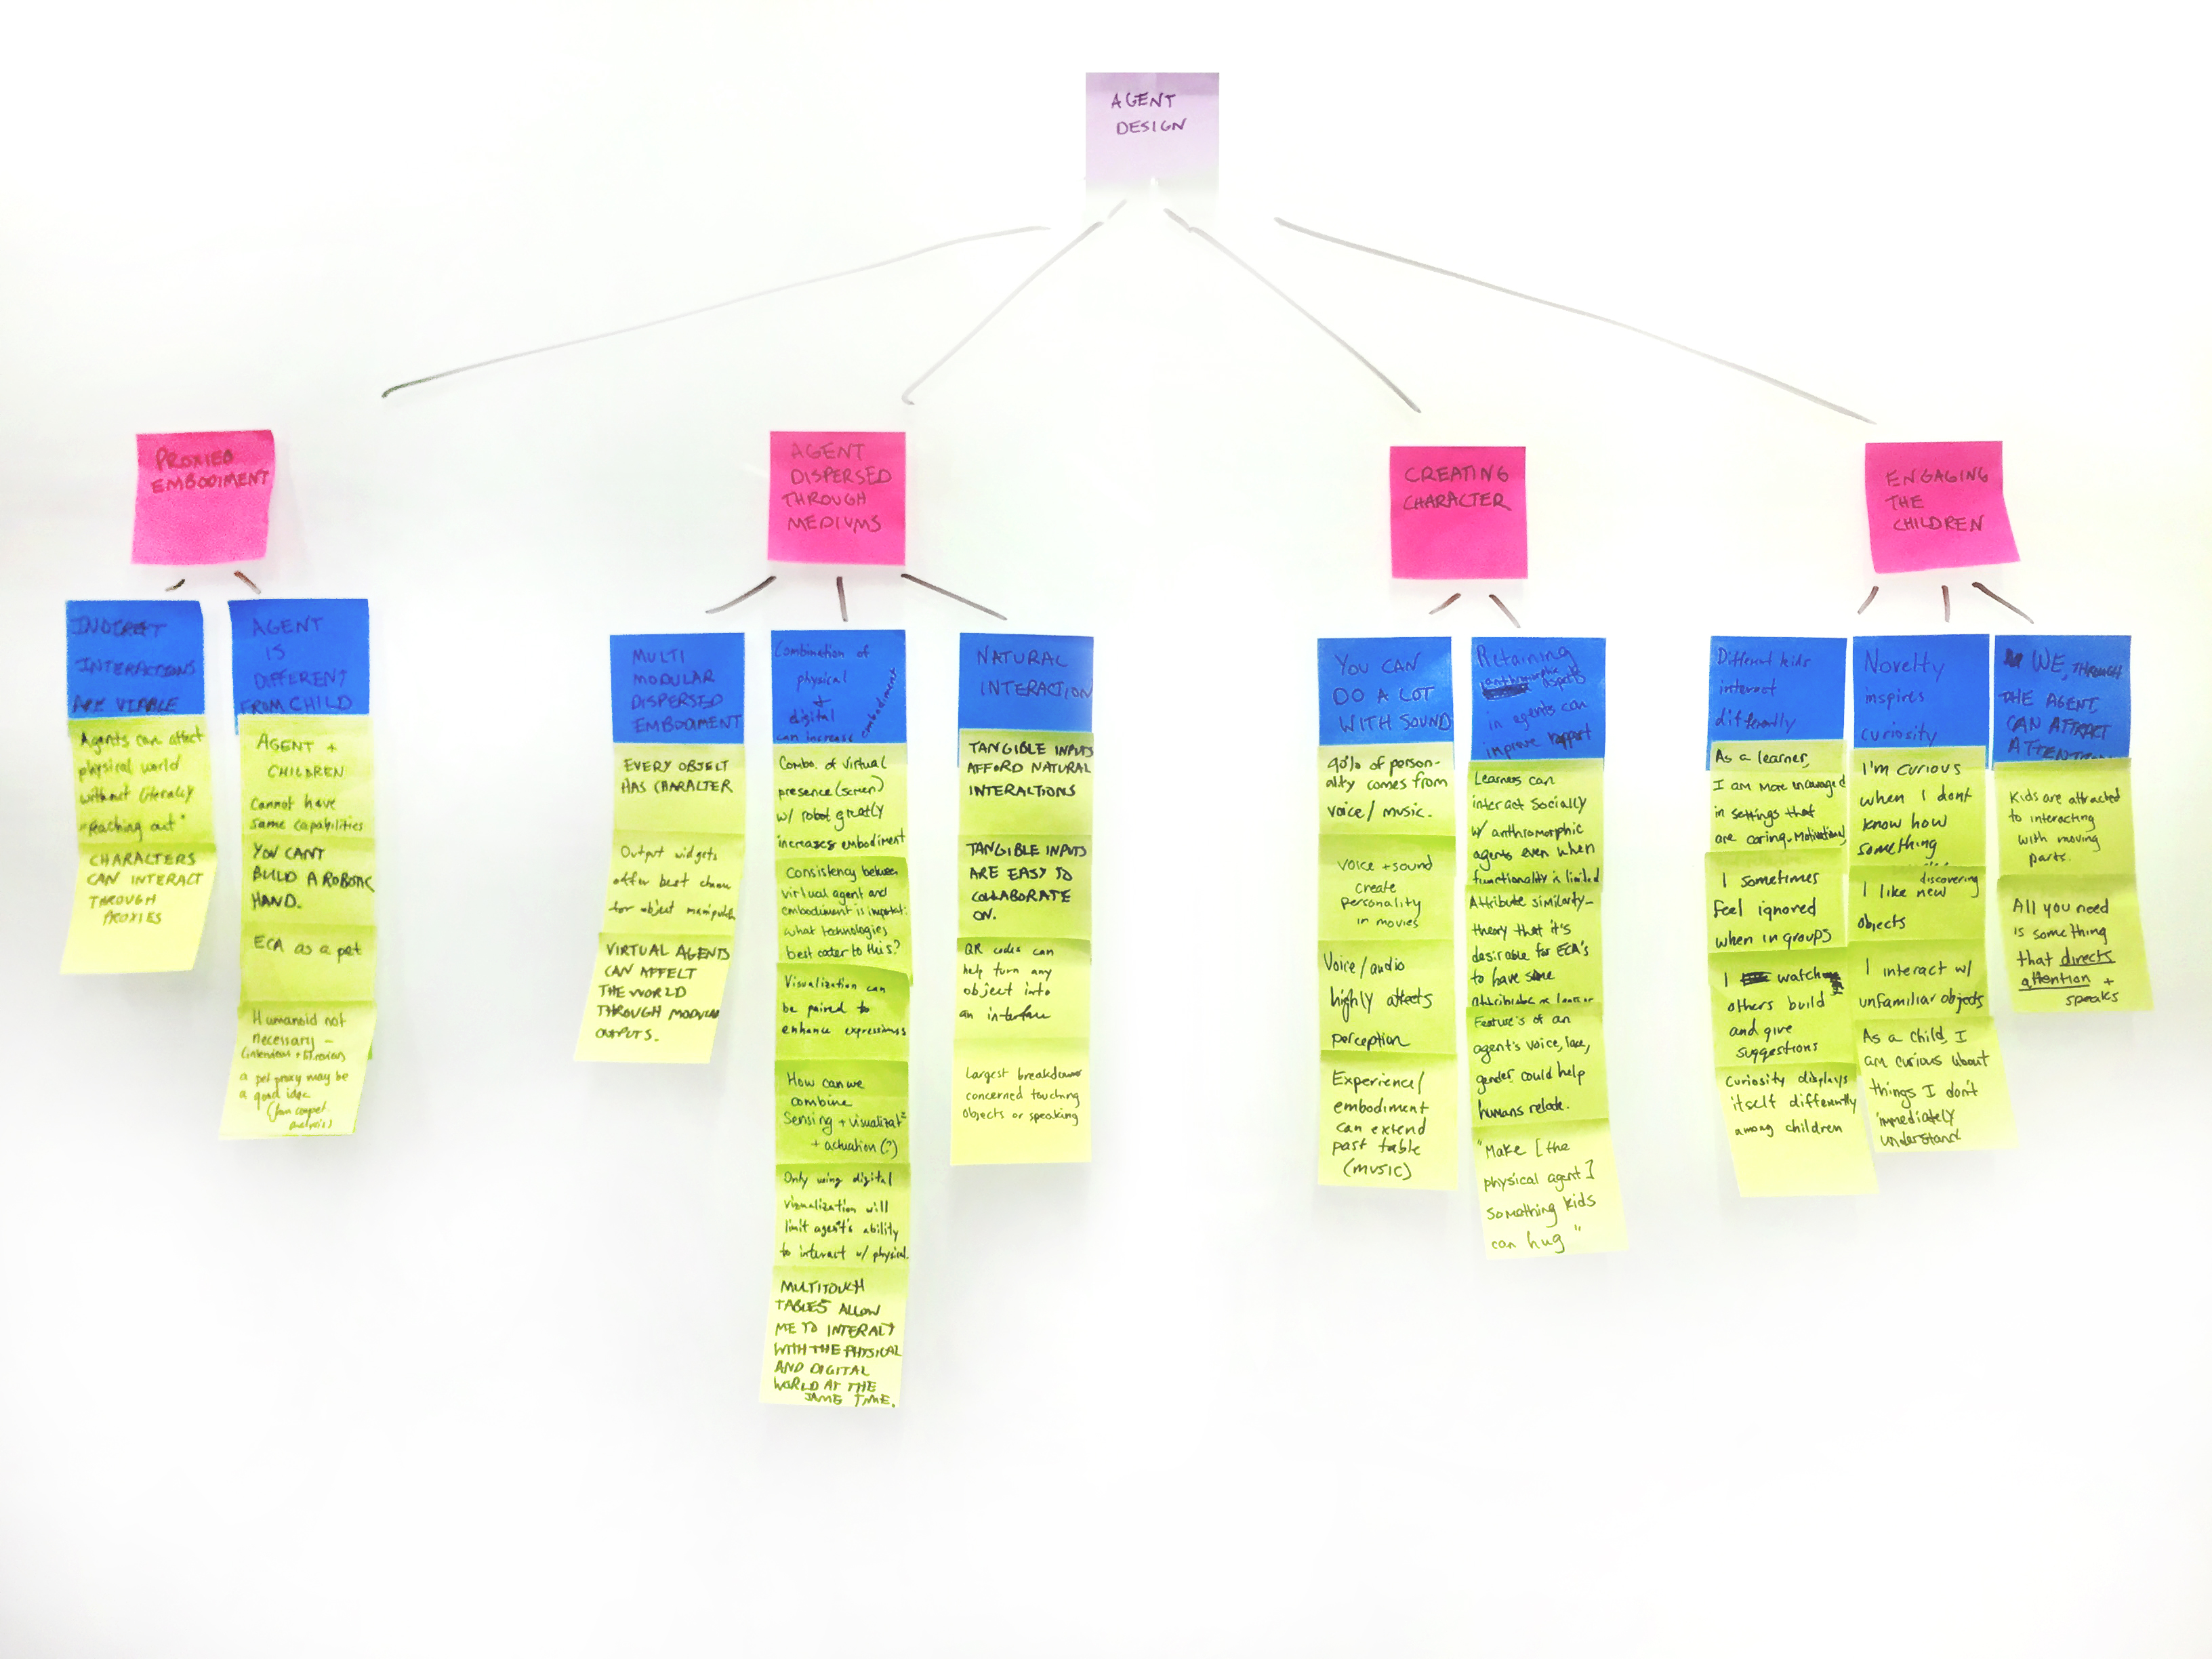 AGENT
DESIGN
PROXIED
EMBODIMENT
INDIRECT
INTERACTIONS
ARE VIABLE
Agents can affect
physical world
without literally
"reaching out"
CHARACTERS
CAN INTERACT
THROUGH
PROXIES
AGENT
IS
DIFFERENT
FROM CHILD
AGENT +
CHILDREN
Cannot have
same capabilities
YOU CAN'T
BUILD A ROBOTIC
HAND.
ECA as a pet
Humanoid not
necessary –
(interviews +
a pet proxy may be
a good idea
(from compet.
analysis)
AGENT
DISPERSED
THROUGH
MEDIUMS
MULTI
MODULAR
DISPERSED
EMBODIMENT
EVERY OBJECT
HAS CHARACTER
Output widgets
offer best chance
for object manipulation
VIRTUAL AGENTS
CAN AFFECT
THE WORLD
THROUGH MODULAR
OUTPUTS.
Combination of
physical
+
digital
can increase embodiment
Combo. of virtual
presence (screen)
w/ robot greatly
increases embodiment
Consistency between
virtual agent and
embodiment is important:
what technologies
best cater to this?
Visualization can
be paired to
enhance expressiveness
How can we
combine
Sensing + visualizat
+ actuation (?)
Only using digital
visualization will
limit agent's ability
to interact w/ physical.
MULTITOUCH
TABLES ALLOW
ME TO INTERACT
WITH THE PHYSICAL
AND DIGITAL
WORLD AT THE
SAME TIME.
NATURAL
INTERACTION
TANGIBLE INPUTS
AFFORD NATURAL
INTERACTIONS
TANGIBLE INPUTS
ARE EASY TO
COLLABORATE
ON.
QR codes can
help turn any
object into
an interface
Largest breakdowns
concerned touching
objects or speaking
CREATING
CHARACTER
YOU CAN
DO A LOT
WITH SOUND
90% of person-
ality comes from
voice / music.
Voice + sound
create
personality
in movies
Voice / audio
highly affects
perception
Experience/
embodiment
can extend
past table
(MUSIC)
Retaining
anthromorphic
aspects
in agents can
improve rapport
Learners can
interact socially
w/ anthromorphic
agents even when
functionality is limited
Attribute similarity –
theory that it's
desirable for ECA's
to have same
attributes as learner
Feature's of an
agent's voice, face,
gender, could help
humans relate.
"Make [the
physical agent]
something kids
can hug"
ENGAGING
THE
CHILDREN
Different kids
interact
differently
As a learner,
I am more encouraged
in settings that
are caring-motivational
I sometimes
feel ignored
when in groups
I watch
others build
and give
suggestions
Curiosity displays
itself differently
among children
Novelty
inspires
curiosity
I'm curious
when I dont
know how
something
I like new discovering
objects
I interact w/
unfamiliar objects
As a child, I
am curious about
things I don't
immediately
understand
WE, THROUGH
THE AGENT,
CAN ATTRACT
ATTENTION
Kids are attracted
to interacting
with moving
parts.
All you need
is something
that directs
attention +
speaks